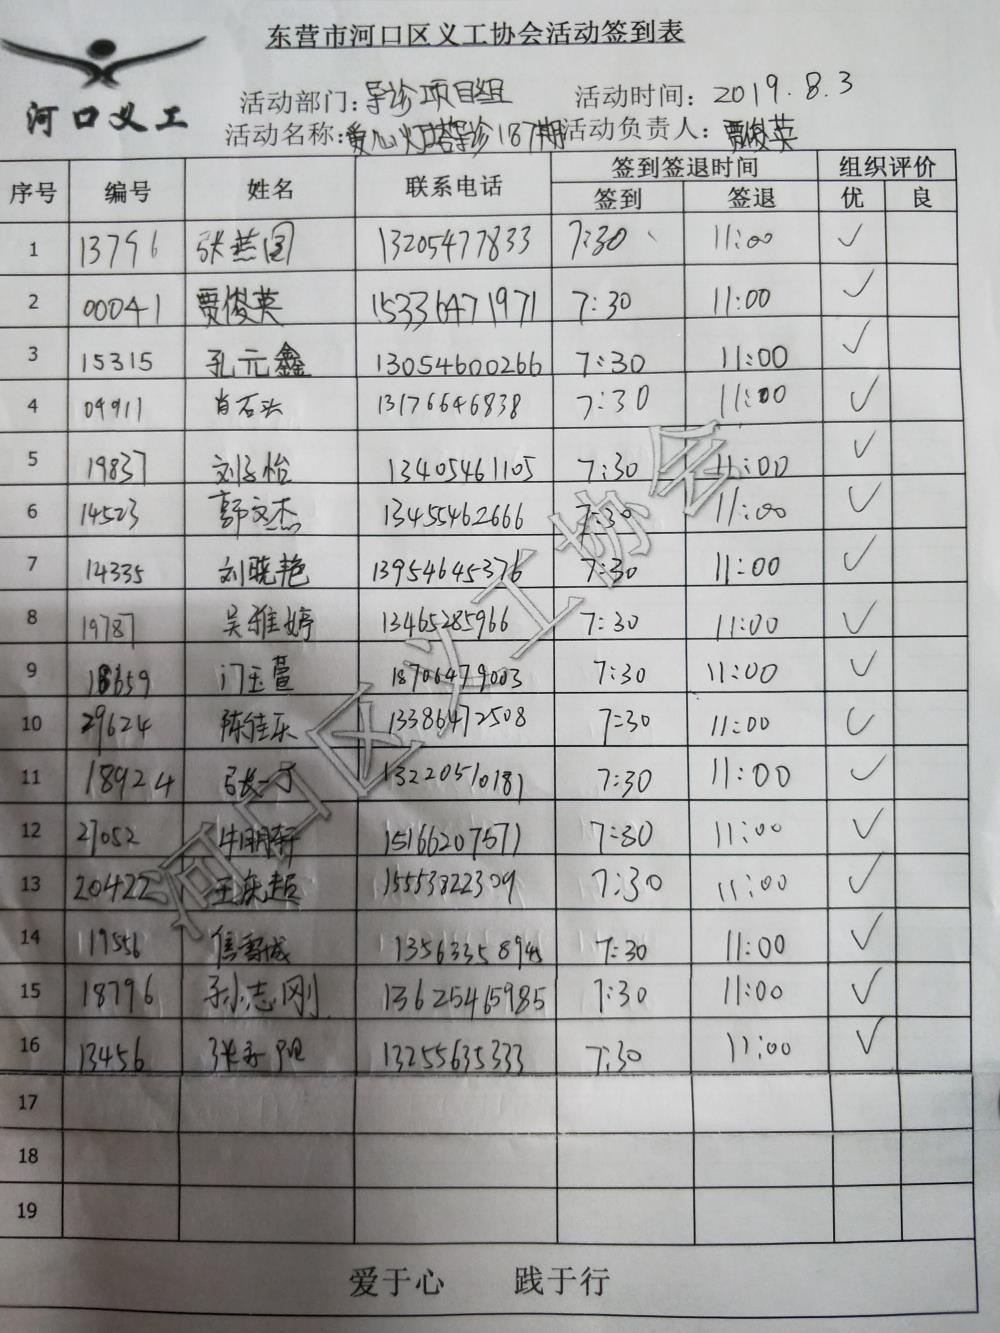 东营市河口区义工协会活动签到表
河口义工
活动部门:导诊项目组 活动时间:2019.8.3
活动名称:爱心灯塔导诊187期 活动负责人:贾俊英
序号 编号 姓名 联系电话 签到签退时间 组织评价
签到 签退 优 良
1 13796 张燕国 13205477833 7:30 11:00 ✓
2 00041 贾俊英 15336471971 7:30 11:00 ✓
3 15315 孔元鑫 13054600266 7:30 11:00 ✓
4 09911 肖石头 13176646838 7:30 11:00 ✓
5 19837 刘子怡 13405461105 7:30 11:00 ✓
6 14523 郭文杰 13455462666 7:30 11:00 ✓
7 14335 刘晓艳 13954645376 7:30 11:00 ✓
8 19787 吴雅婷 13465285966 7:30 11:00 ✓
9 18659 门玉萱 18706479003 7:30 11:00 ✓
10 29624 陈佳乐 13386472508 7:30 11:00 ✓
11 18924 张一子 13220510181 7:30 11:00 ✓
12 27052 牛明轩 15166207571 7:30 11:00 ✓
13 20422 王奕超 15553822309 7:30 11:00 ✓
14 19556 信 成 13563358945 7:30 11:00 ✓
15 18796 孙志刚 13625465985 7:30 11:00 ✓
16 13456 张 阳 13255635333 7:30 11:00 ✓
17
18
19
爱于心 践于行
河口区义工协会